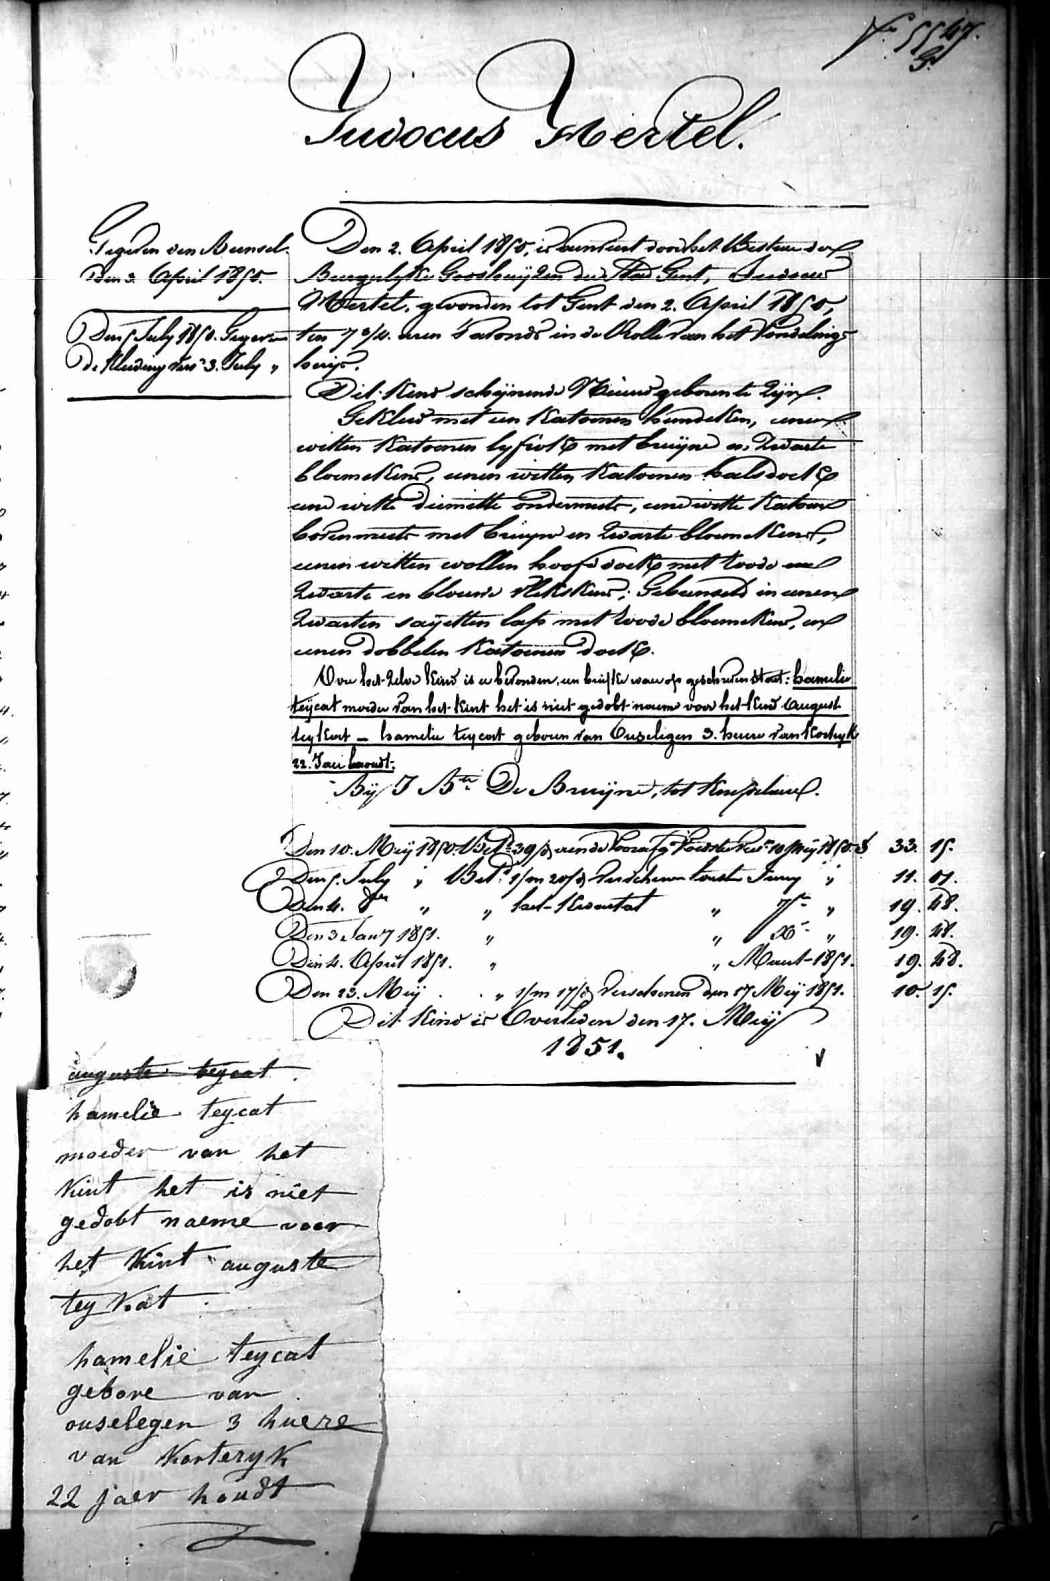 Nº 5547.
G.
Judocus Hertel.
Gegeven den Bunsel.
Den 3. April 1850.
Den 5 July 1850. Gegeven
de Kleeding van 3. July "
Den 2. April 1850, is door het Bestuur der
Burgerlyke Godshuijzen der Stad Gent, Judocus
Hertel, gevonden tot Gent den 2. April 1850,
ten 7 uren 's avonds in de Rolle van het Vondeling
huijs.
Dit Kind schijnende Nieuw geboren te Zijn.
Gekleed met een Katoenen hemdeken, eenen
witten Katoenen lyfrok met bruijne en Zwarte
bloemekens, eenen witten Katoenen halsdoek
eene witte diemitte ondermuts, eene witte Katoene
bovenmuts met bruijne en Zwarte bloemekens,
eenen witten wollen hoofddoek met roode en
Zwarte en blauwe vlekskens; Gebunseld in eenen
Zwarten sayetten lap met roode bloemekens, en
eenen dobbelen Katoenen doek.
Over het Zelve Kind is er bevonden een briefke waer op geschreven staet: hamelie
teijcat moeder van het Kint het is niet gedobt naeme voor het Kind August
teykat — hamelie teycat geboren van Ouselegen 3. huere van Kortryk
22. Jaer houdt.
Bij J Bte De Bruijne, tot
Den 10. Meij 1850 Betd 39/d 10 Meij 1850 33. 15.
Den 5. July " Betd 1/m 20/d Verschenen Juny " 11. 01.
Den 4. 8ber " " laet- Kwartal " 7br " 19. 48.
Den 3 Jany 1851. " " Xr " 19. 48.
Den 4. April 1851. " " Maart-1851. 19. 48.
Den 23. Meij " 1/m 17/d Verschenen den 17 Meij 1851. 10. 15.
Dit Kind is Overleden den 17. Meij
1851.
auguste teycat
hamelie teycat
moeder van het
Kint het is niet
gedobt naeme voor
het Kint auguste
tey Kat
hamelie teycat
gebore van
ouselegen 3 huere
van Korteryk
22 jaer houdt